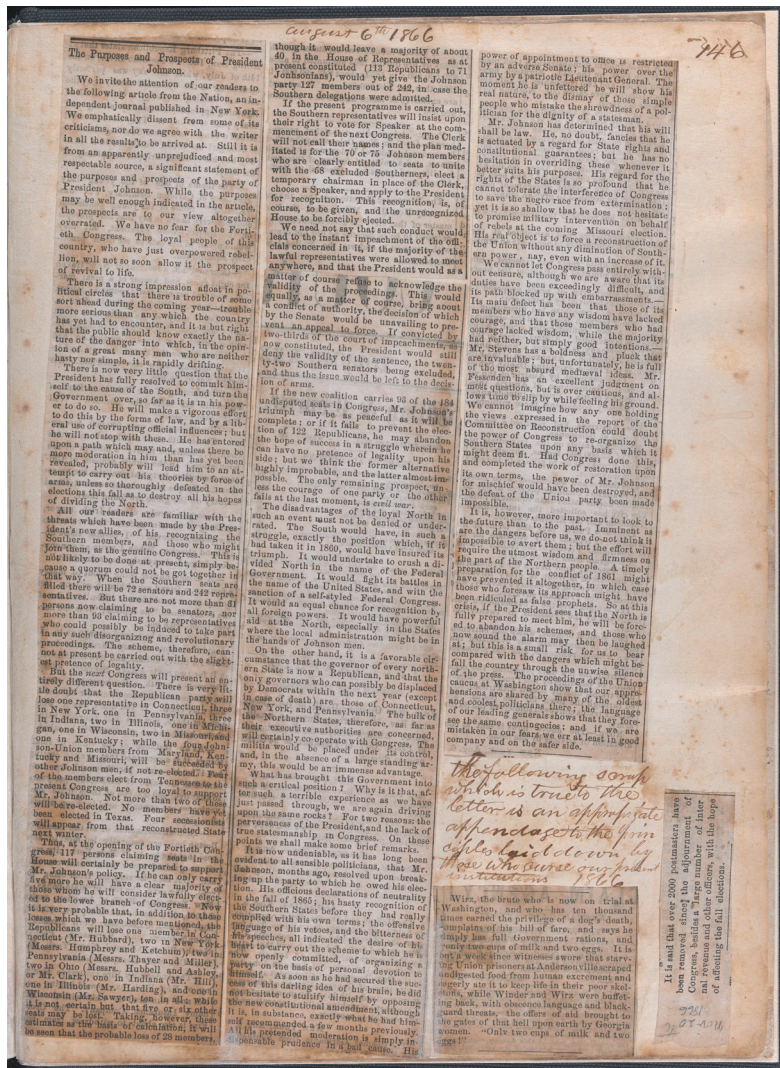 august 6th 1866
746
The Purposes and Prospects of President
Johnson.
We invite the attention of our readers to
the following article from the Nation, an in-
dependent journal published in New York.
We emphatically dissent from some of its
criticisms, nor do we agree with the writer
in all the results to be arrived at. Still it is
from an apparently unprejudiced and most
respectable source, a significant statement of
the purposes and prospects of the party of
President Johnson. While the purposes
may be well enough indicated in the article,
the prospects are to our view altogether
overrated. We have no fear for the Forti-
eth Congress. The loyal people of this
country, who have just overpowered rebel-
lion, will not so soon allow it the prospect
of revival to life.
There is a strong impression afloat in po-
litical circles that there is trouble of some
sort ahead during the coming year—trouble
more serious than any which the country
has yet had to encounter, and it is but right
that the public should know exactly the na-
ture of the danger into which, in the opin-
ion of a great many men who are neither
hasty nor simple, it is rapidly drifting.
There is now very little question that the
President has fully resolved to commit him-
self to the cause of the South, and turn the
Government over, so far as it is in his pow-
er to do so. He will make a vigorous effort
to do this by the forms of law, and by a lib-
eral use of corrupting official influences; but
he will not stop with these. He has entered
upon a path which may and, unless there be
more moderation in him than has yet been
revealed, probably will lead him to an at-
tempt to carry out his theories by force of
arms, unless so thoroughly defeated in the
elections this fall as to destroy all his hopes
of dividing the North.
All our readers are familiar with the
threats which have been made by the Pres-
ident's new allies, of his recognizing the
Southern members, and those who might
join them, as the genuine Congress. This is
not likely to be done at present, simply be-
cause a quorum could not be got together in
that way. When the Southern seats are
filled there will be 72 senators and 242 repre-
sentatives. But there are not more than 31
persons now claiming to be senators, nor
more than 93 claiming to be representatives
who could possibly be induced to take part
in any such disorganizing and revolutionary
proceedings. The scheme, therefore, can-
not at present be carried out with the slight-
est pretence of legality.
But the next Congress will present an en-
tirely different question. There is very lit-
tle doubt that the Republican party will
lose one representative in Connecticut, three
in New York, one in Pennsylvania, three
in Indiana, two in Illinois, one in Michi-
gan, one in Wisconsin, two in Missouri, and
one in Kentucky; while the four John-
son-Union members from Maryland, Ken-
tucky and Missouri, will be succeeded by
other Johnson men, if not re-elected. Four
of the members elect from Tennessee to the
present Congress are too loyal to support
Mr. Johnson. Not more than two of these
will be re-elected. No members have yet
been elected in Texas. Four secessionists
will appear from that reconstructed State
next winter.
Thus, at the opening of the Fortieth Con-
gress, 117 persons claiming seats in the
House will certainly be prepared to support
Mr. Johnson's policy. If he can only carry
five more he will have a clear majority of
those whom he will consider lawfully elect-
ed to the lower branch of Congress. Now
it is very probable that, in addition to these
losses which we have before mentioned, the
Republicans will lose one member in Con-
necticut (Mr. Hubbard), two in New York
(Messrs. Humphrey and Ketchum), two in
Pennsylvania (Messrs. Thayer and Miller),
two in Ohio (Messrs. Hubbell and Ashley,
or Mr. Clark), one in Indiana (Mr. Hill),
one in Illinois (Mr. Harding), and one in
Wisconsin (Mr. Sawyer), ten in all; while
it is not certain but that five or six other
seats may be lost. Taking, however, these
estimates as the basis of calculation, it will
be seen that the probable loss of 28 members,
though it would leave a majority of about
40 in the House of Representatives as at
present constituted (113 Republicans to 71
Jonhsonians), would yet give the Johnson
party 127 members out of 242, in case the
Southern delegations were admitted.
If the present programme is carried out,
the Southern representatives will insist upon
their right to vote for Speaker at the com-
mencment of the next Congress. The Clerk
will not call their names; and the plan med-
itated is for the 70 or 75 Johnson members
who are clearly entitled to seats to unite
with the 58 excluded Southerners, elect a
temporary chairman in place of the Clerk,
choose a Speaker, and apply to the President
for recognition. This recognition is, of
course, to be given, and the unrecognized
House to be forcibly ejected.
We need not say that such conduct would
lead to the instant impeachment of the offi-
cials concerned in it, if the majority of the
lawful representatives were allowed to meet
anywhere, and that the President would as a
matter of course refuse to acknowledge the
validity of the proceedings. This would
equally, as a matter of course, bring about
a conflict of authority, the decision of which
by the Senate would be unavailing to pre-
vent an appeal to force. If convicted by
two-thirds of the court of impeachments, as
now constituted, the President would still
deny the validity of the sentence, the twen-
ty-two Southern senators being excluded,
and thus the issue would be left to the decis-
ion of arms.
If the new coalition carries 95 of the 184
undisputed seats in Congress, Mr. Johnson's
triumph may be as peaceful as it will be
complete; or if it fails to prevent the elec-
tion of 122 Republicans, he may abandon
the hope of success in a struggle wherein he
can have no pretence of legality upon his
side; but we think the former alternative
highly improbable, and the latter almost im-
possble. The only remaining prospect, un-
less the courage of one party or the other
fails at the last moment, is civil war.
The disadvantages of the loyal North in
such an event must not be denied or under-
rated. The South would have, in such a
struggle, exactly the position which, if it
had taken it in 1860, would have insured its
triumph. It would undertake to crush a di-
vided North in the name of the Federal
Government. It would fight its battles in
the name of the United States, and with the
sanction of a self-styled Federal Congress.
It would an equal chance for recognition by
all foreign powers. It would have powerful
aid at the North, especially in the States
where the local administration might be in
the hands of Johnson men.
On the other hand, it is a favorable cir-
cumstance that the governor of every north-
ern State is now a Republican, and that the
only governors who can possibly be displaced
by Democrats within the next year (except
in case of death) are those of Connecticut,
New York, and Pennsylvania. The bulk of
the Northern States, therefore, as far as
their executive authorities are concerned,
will certainly co-operate with Congress. The
militia would be placed under its control,
and, in the absence of a large standing ar-
my, this would be an immense advantage.
What has brought this Government into
such a critical position? Why is it that, af-
ter such a terrible experience as we have
just passed through, we are again driving
upon the same rocks? For two reasons: the
perverseness of the President, and the lack of
true statesmanship in Congress. On these
points we shall make some brief remarks.
It is now undeniable, as it has long been
evident to all sensible politicians, that Mr.
Johnson, months ago, resolved upon break-
ing up the party to which he owed his elec-
tion. His officious declarations of neutrality
in the fall of 1865; his hasty recognition of
the Southern States before they had really
complied with his own terms; the offensive
language of his vetoes, and the bitterness of
his speeches, all indicated the desire of his
heart to carry out the scheme to which he is
now openly committed, of organizing a
party on the basis of personal devotion to
himself. As soon as he had secured the suc-
cess of this darling idea of his brain, he did
not hesitate to stultify himself by opposing
the new constitutional amendment, although
it is, in substance, exactly what he had him-
self recommended a few months previously.
All his pretended moderation is simply in-
dispensable prudence in a bad cause. His
power of appointment to office is restricted
by an adverse Senate; his power over the
army by a patriotic Lieutenant General. The
moment he is unfettered he will show his
real nature, to the dismay of those simple
people who mistake the shrewdness of a pol-
itician for the dignity of a statesman.
Mr. Johnson has determined that his will
shall be law. He, no doubt, fancies that he
is actuated by a regard for State rights and
constitutional guarantees; but he has no
hesitation in overriding these whenever it
better suits his purposes. His regard for the
rights of the States is so profound that he
cannot tolerate the interference of Congress
to save the negro race from extermination;
yet it is so shallow that he does not hesitate
to promise military intervention on behalf
of rebels at the coming Missouri election.
His real object is to force a reconstruction of
the Union without any diminution of South-
ern power, nay, even with an increase of it.
We cannot let Congress pass entirely with-
out censure, although we are aware that its
duties have been exceedingly difficult, and
its path blocked up with embarrassments.—
Its main defect has been that those of its
members who have any wisdom have lacked
courage, and that those members who had
courage lacked wisdom, while the majority
had neither, but simply good intentions.—
Mr. Stevens has a boldness and pluck that
are invaluable; but, unfortunately, he is full
of the most absurd mediæval ideas. Mr.
Fessenden has an excellent judgment on
most questions, but is over cautious, and al-
lows time to slip by while feeling his ground.
We cannot imagine how any one holding
the views expressed in the report of the
Committee on Reconstruction could doubt
the power of Congress to re-organize the
Southern States upon any basis which it
might deem fit. Had Congress done this,
and completed the work of restoration upon
its own terms, the pewer of Mr. Johnson
for mischief would have been destroyed, and
the defeat of the Union party been made
impossible.
It is, however, more important to look to
the future than to the past. Imminent as
are the dangers before us, we do not think it
impossible to avert them; but the effort will
require the utmost wisdom and firmness on
the part of the Northern people. A timely
preparation for the conflict of 1861 might
have prevented it altogether, in which case
those who foresaw its approach might have
been ridiculed as false prophets. So at this
crisis, if the President sees that the North is
fully prepared to meet him, he will be forc-
ed to abandon his schemes, and those who
now sound the alarm may then be laughed
at; but this is a small risk for us to bear
compared with the dangers which might be-
fall the country through the unwise silence
of the press. The proceedings of the Union
caucus at Washington show that our appre-
hensions are shared by many of the oldest
and coolest politicians there; the language
of our leading generals shows that they fore-
see the same contingecies; and if we are
mistaken in our fears we err at least in good
company and on the safer side.
the following scrap
which is true to the
letter is an appropriate
appendage to the prin
ciples laid down by
those who curse our present
institutions 1866
Wirz, the brute who is now on trial at
Washington, and who has ten thousand
times earned the privilege of a dog's death,
complains of his bill of fare, and says he
simply has full Government rations, and
only two cups of milk and two eggs. It is
but a week since witnesses swore that starv-
ing Union prisoners at Andersonville scraped
undigested food from human excrement and
eagerly ate it to keep life in their poor skel-
etons, while Winder and Wirz were buffet-
ing back, with obscene language and black-
guard threats, the offers of aid brought to
the gates of that hell upon earth by Georgia
women. "Only two cups of milk and two
eggs!"
It is said that over 2000 postmasters have
been removed since the adjournment of
Congress, besides a large number of inter
nal revenue and other officers, with the hope
of affecting the fall elections.
Nov 20
1866